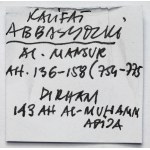 KALIFAT
ABBASYDZKI
AL. MANSUR
AH. 136-158 (754-775
DIRHAM
143 AH AL-MUHAMM